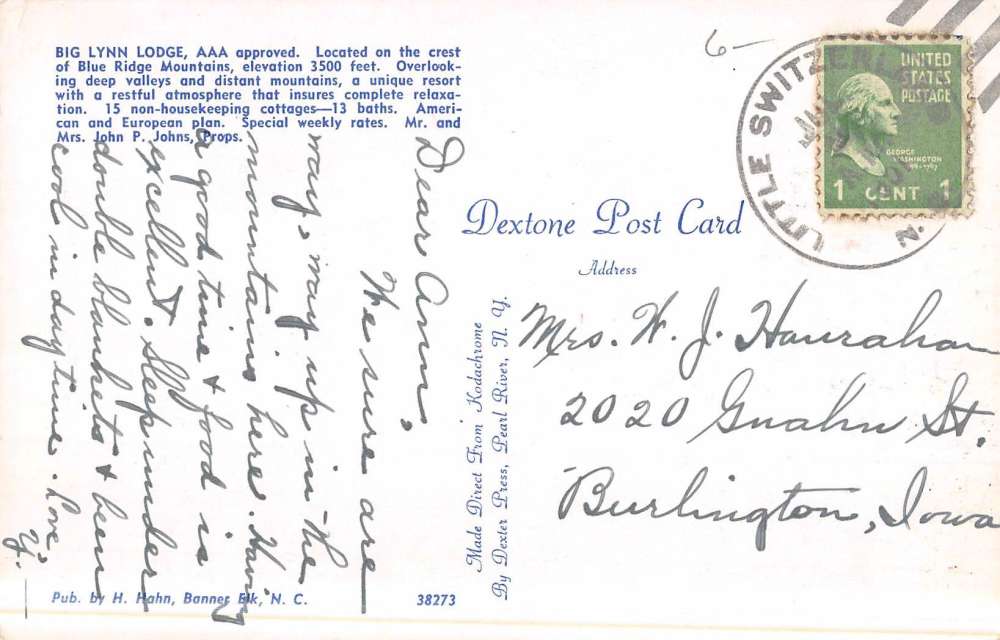 BIG LYNN LODGE, AAA approved. Located on the crest
of Blue Ridge Mountains, elevation 3500 feet. Overlook-
ing deep valleys and distant mountains, a unique resort
with a restful atmosphere that insures complete relaxa-
tion. 15 non-housekeeping cottages—13 baths. Ameri-
can and European plan. Special weekly rates. Mr. and
Mrs. John P. Johns, Props.
Dear Ann,
We sure are
way, way up in the
mountains here. Having
a good time & food is
excellent. Sleep under
double blankets & been
cool in daytime. Love,
Pub. by H. Hahn, Banner Elk, N. C.
38273
Made Direct From Kodachrome
By Dexter Press, Pearl River, N. Y.
Dextone Post Card
Address
6-
LITTLE SWITZERL
N.
UNITED
STATES
POSTAGE
GEORGE
WASHINGTON
1 CENT 1
Mrs. W. J. Hanrahan
2020 St.
Burlington, Iowa